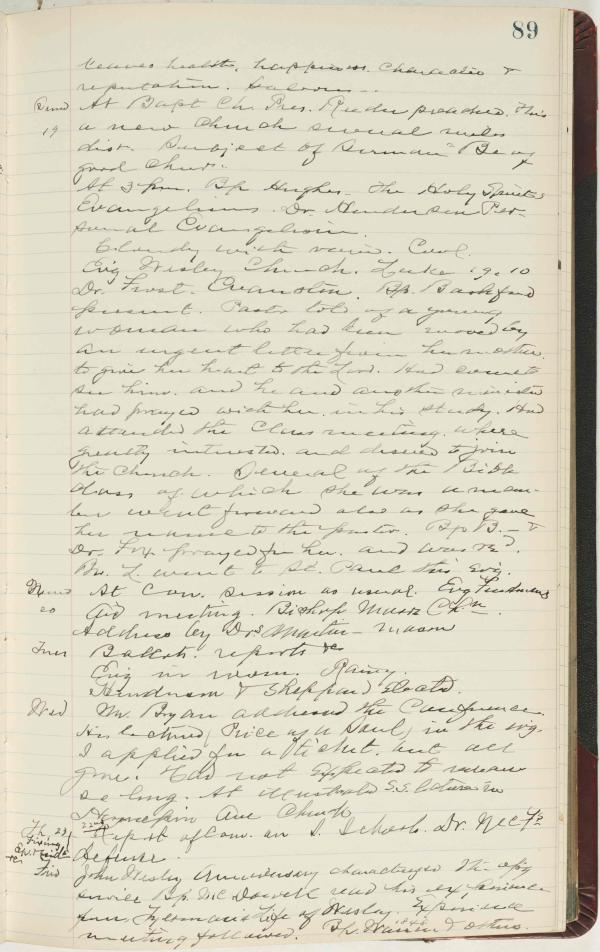 89
leaves health, happiness, character &
reputation.
At Bapt Ch. Pres. Reeder preached. This
19 a new church several miles
dist. Subject of Sermon "Be of
good cheer."
At 3 pm. Bp Hughes - The Holy Spirit &
Evangelism. Dr. Henderson Per-
sonal Evangelism.
Cloudy with rain. Cool.
Evg Wesley Church. Luke 19.10
Dr. Frost. Evanston. Bp. Bashford
present. Pastor told of a young
woman who had been moved by
an urgent letter from her mother.
to give her heart to the Lord. Had come to
see him. and he and another minister
had prayed with her in his study. Had
attended the Class meeting. where
greatly interested. and desired to join
the Church. Several of the Bible
class of which she was a mem-
ber went forward also as she gave
her name to the pastor. Bp B. - &
Dr. prayed for her. and was re'd.
Bro. L. went to St. Paul this Evg.
At Con. session as usual. Evg Freedmens
20 Aid meeting. Bishop
Address by Drs Martin - Mason
Tues Ballots. reports &c
Evg in room. Rainy.
Henderson & Sheppard Elected.
Wed Mr. Bryan addressed the Conference.
His lecture (Price of a Soul) in the evg.
I applied for a ticket. but all
gone. Had not Expected to remain
so long. At S.S. lecture in
Hennepin Ave Church
Th 23 Report of Com. on S. Schools. Dr.
defense.
Frid John Wesley Anniversary characterized the opg
service Bp. McDowell read his experience
from Tyerman's life of Wesley. Experience
meeting followed. Bp Warren & others.